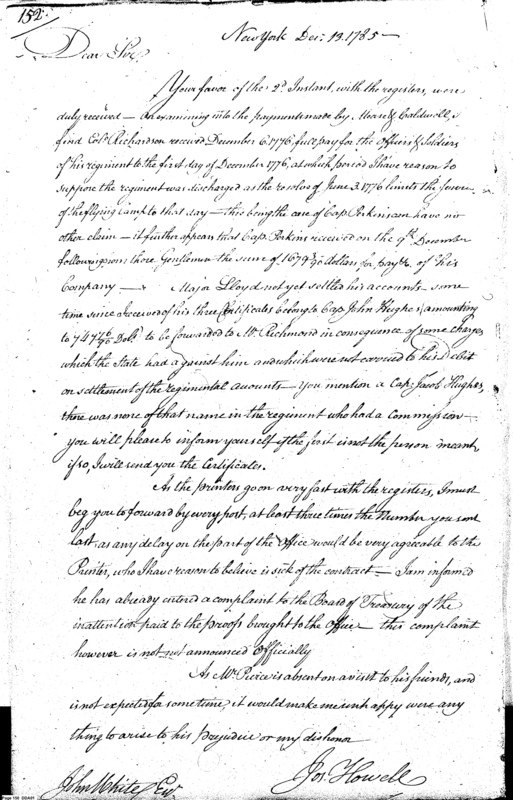 152.
New York Dec. 13. 1785 —
Dear Sir,
Your favor of the 2d. Instant, with the registers, were
duly received — On examining into the payments made by Mease & Caldwell, I
find Colo. Richardson received December 6. 1776, full pay for the Officers & Soldiers
of his regiment to the first day of December 1776, at which period I have reason to
suppose the regiment was discharged as the resolve of June 3. 1776 limits the service
of the flying Camp to that day — this being the case Cap. Perkins can have no
other claim — it further appears that Cap. Perkins received on the 9th. December
following from those Gentlemen the sum of dollars for pay &c. of his
Company — Major Lloyd not yet settled his accounts some
time since I received of his three Certificates belong to Cap. John Hughes amounting
to Dolrs. to be forwarded to Mr. Richmond in consequence of some charges
which the State had against him and which were not carried to his debit
on settlement of the regimental accounts — You mention a Cap. Jacob Hughes,
there was none of that name in the regiment who had a commission —
you will please to inform yourself if the first is not the person meant,
if so, I will send you the Certificates.
As the printers go on very fast with the registers, I must
beg you to forward by every post, at least three times the Number you sent
last, as any delay on the part of the Office would be very agreeable to the
Printer, who I have reason to believe is sick of the contract — I am informed
he has already entered a complaint to the Board of Treasury of the
inattention paid to the proofs brought to the Office — this complaint
however is not not announced Officially
As Mr. Pierce is absent on a visit to his friends, and
is not expected for some time, it would make me unhappy were any
thing to arise to his prejudice or my dishonor
Jos. Howell
John White Esqr.